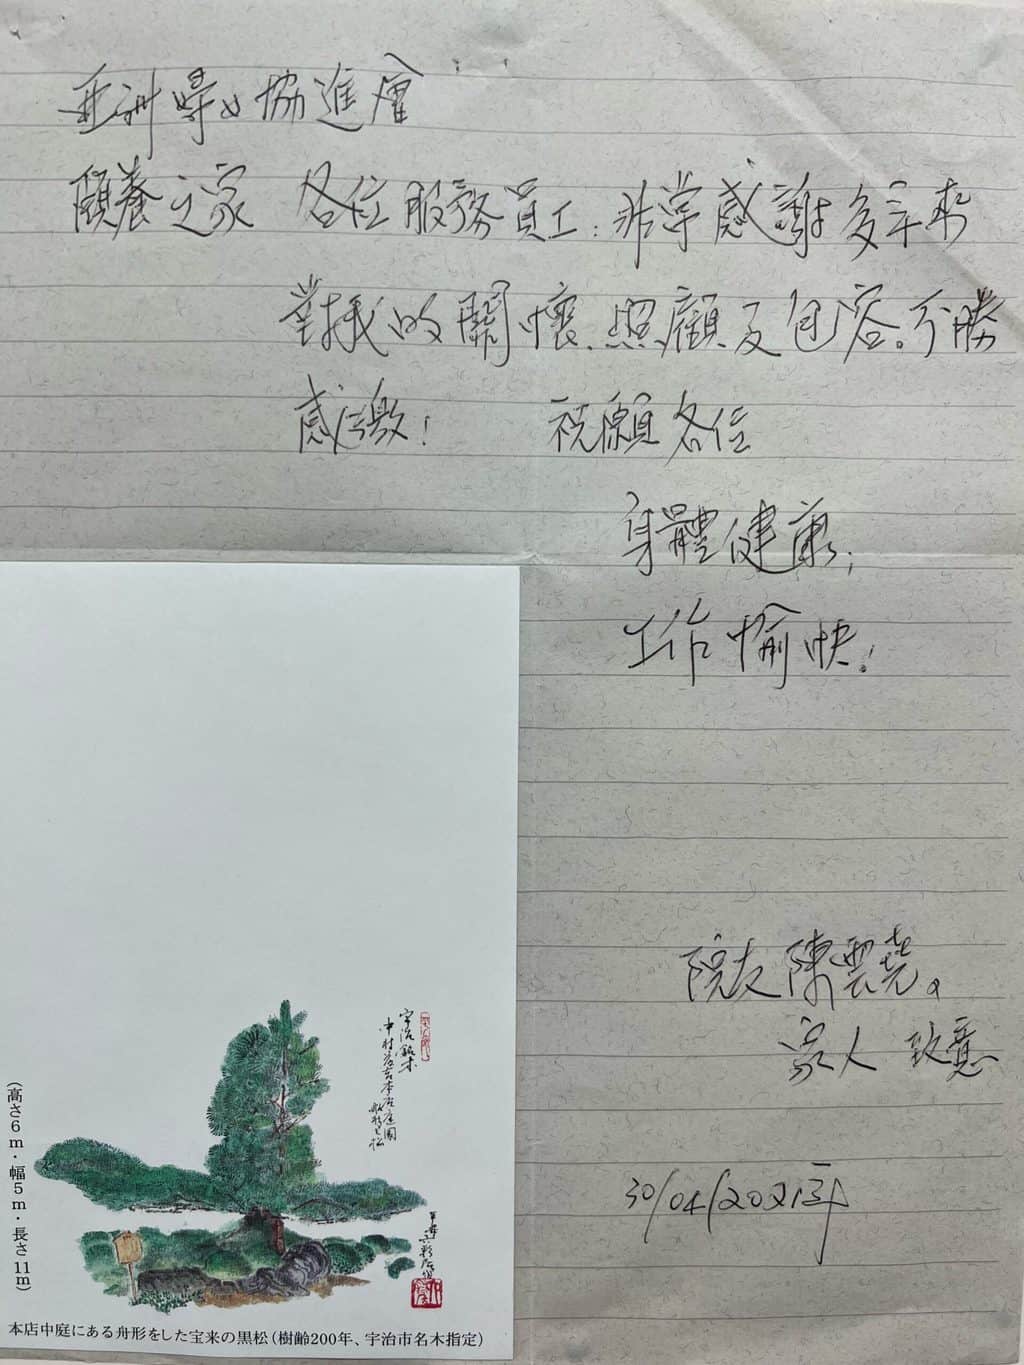 亞洲婦女協進會
頤養之家 各位服務員工:非常感謝多年來
對我的關懷、照顧及包容。不勝
感激! 祝願各位
身體健康;
工作愉快!
院友陳雲堯。
家人 致意
30/04/2021年
宇治銘木
中村藤吉本店庭園
舟形之松
(高さ6m・幅5m・長さ11m)
本店中庭にある舟形をした宝来の黒松(樹齢200年、宇治市名木指定)